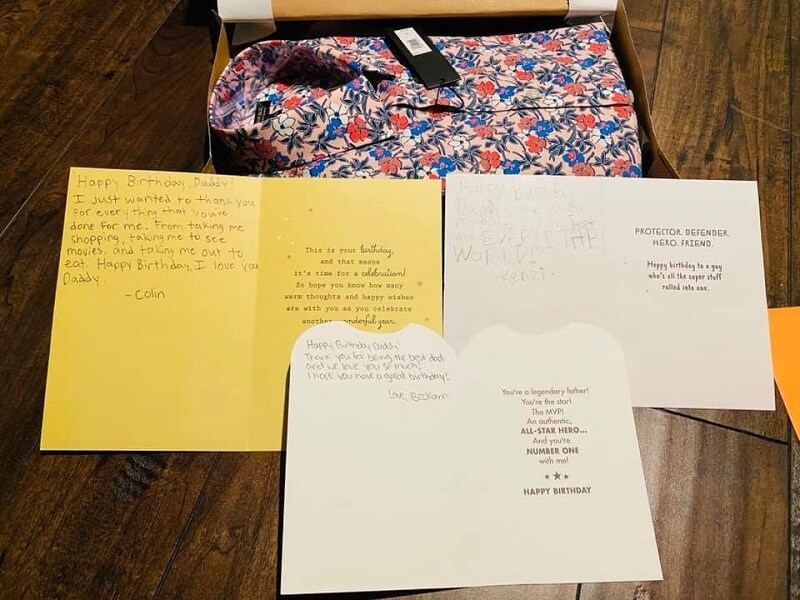 Happy Birthday, Daddy!
I just wanted to thank you
for everything that you've
done for me. From taking me
shopping, taking me to see
movies, and taking me out to
eat. Happy Birthday, I love you
Daddy.
-Colin
This is your birthday,
and that means
it's time for a celebration!
So hope you know how many
warm thoughts and happy wishes
are with you as you celebrate
another wonderful year.
Happy
Daddy
THE
WORLD!
Kenzi.
PROTECTOR. DEFENDER.
HERO. FRIEND.
Happy birthday to a guy
who's all the super stuff
rolled into one.
Happy Birthday Daddy!
Thank you for being the best dad
and we love you so much!
I hope you have a great birthday!
Love, Beckam
You're a legendary father!
You're the star!
The MVP!
An authentic,
ALL-STAR HERO...
And you're
NUMBER ONE
with me!
HAPPY BIRTHDAY